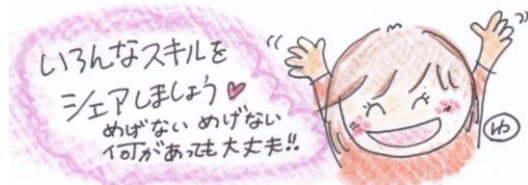 いろんなスキルを
シェアしましょう♥
めげない めげない
何があっても大丈夫!!
ゆ